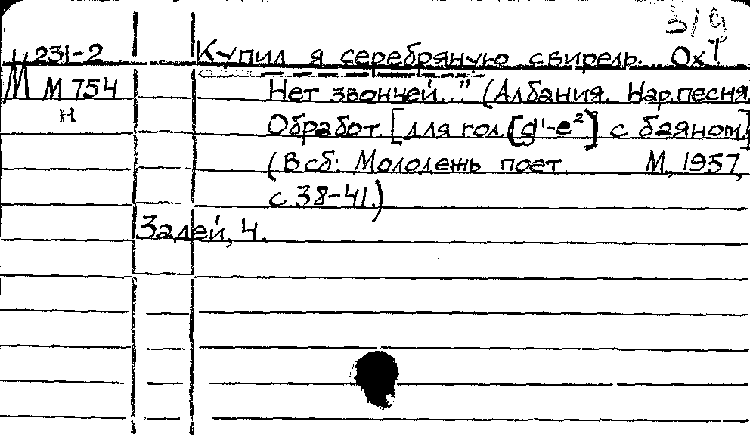 3/9
М 231-2 Купил я серебряную свирель. Ох!
М 754 Нет звончей..." (Албания. Нар.песня
н Обработ. [для гол.(g'-e²) с баяном]
(В сб: Молодежь поет. М, 1957,
с 38-41.)
Залей, 4.